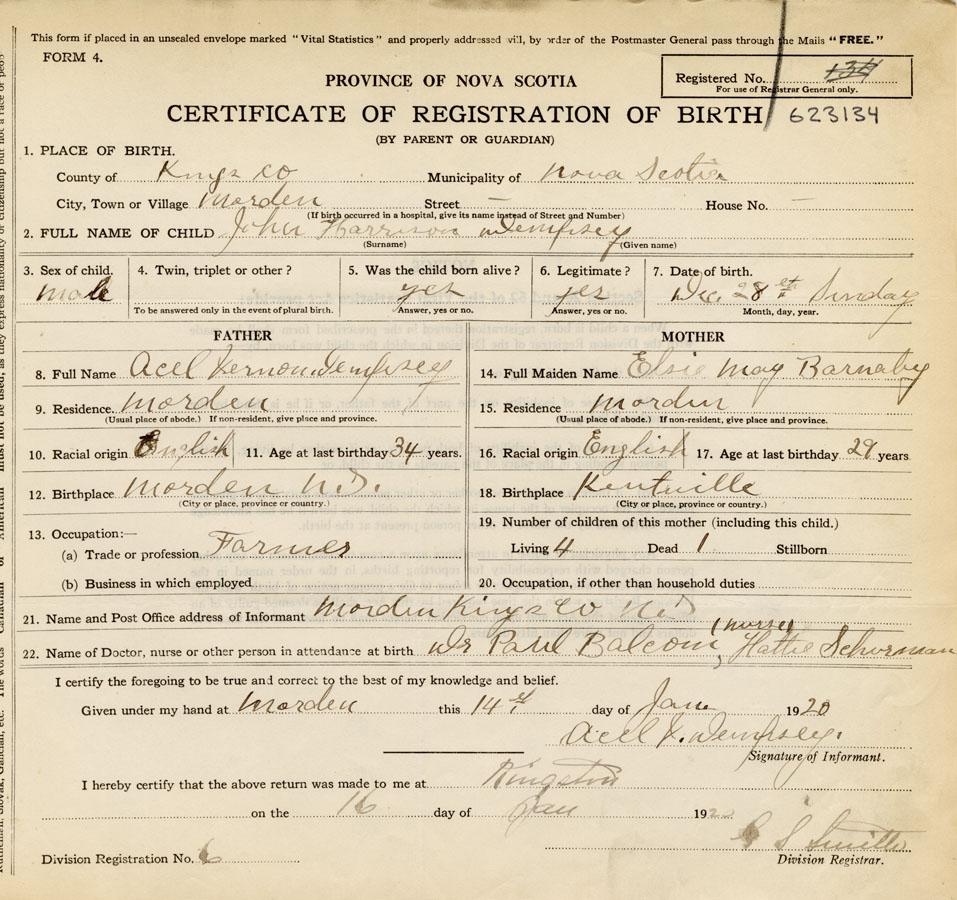 This form if placed in an unsealed envelope marked "Vital Statistics" and properly addressed will, by order of the Postmaster General pass through the Mails "FREE."
FORM 4.
PROVINCE OF NOVA SCOTIA
Registered No. 134
For use of Registrar General only.
CERTIFICATE OF REGISTRATION OF BIRTH 623134
(BY PARENT OR GUARDIAN)
1. PLACE OF BIRTH.
County of Kings Co Municipality of Nova Scotia
City, Town or Village Morden Street — House No. —
(If birth occurred in a hospital, give its name instead of Street and Number)
2. FULL NAME OF CHILD John Harrison Dempsey
(Surname) (Given name)
3. Sex of child. 4. Twin, triplet or other? 5. Was the child born alive? 6. Legitimate? 7. Date of birth.
male yes yes Dec. 28 Sunday
To be answered only in the event of plural birth. Answer, yes or no. Answer, yes or no. Month, day, year.
FATHER
8. Full Name Acel Vernon Dempsey
9. Residence. Morden
(Usual place of abode.) If non-resident, give place and province.
10. Racial origin English 11. Age at last birthday 34 years.
12. Birthplace Morden N.S.
(City or place, province or country.)
13. Occupation:—
(a) Trade or profession Farmer
(b) Business in which employed
MOTHER
14. Full Maiden Name Elsie May Barnaby
15. Residence Morden
(Usual place of abode.) If non-resident, give place and province.
16. Racial origin English 17. Age at last birthday 29 years
18. Birthplace Kentville
(City or place, province or country.)
19. Number of children of this mother (including this child.)
Living 4 Dead 1 Stillborn
20. Occupation, if other than household duties
21. Name and Post Office address of Informant Morden Kings Co N.S
22. Name of Doctor, nurse or other person in attendance at birth Dr Paul Balcom, (nurse) Hattie Schurman
I certify the foregoing to be true and correct to the best of my knowledge and belief.
Given under my hand at Morden this 14 day of Jan 1920
Acel V. Dempsey.
Signature of Informant.
I hereby certify that the above return was made to me at Kingston
on the 16 day of Jan 1920
G S Smith
Division Registration No. 6 Division Registrar.